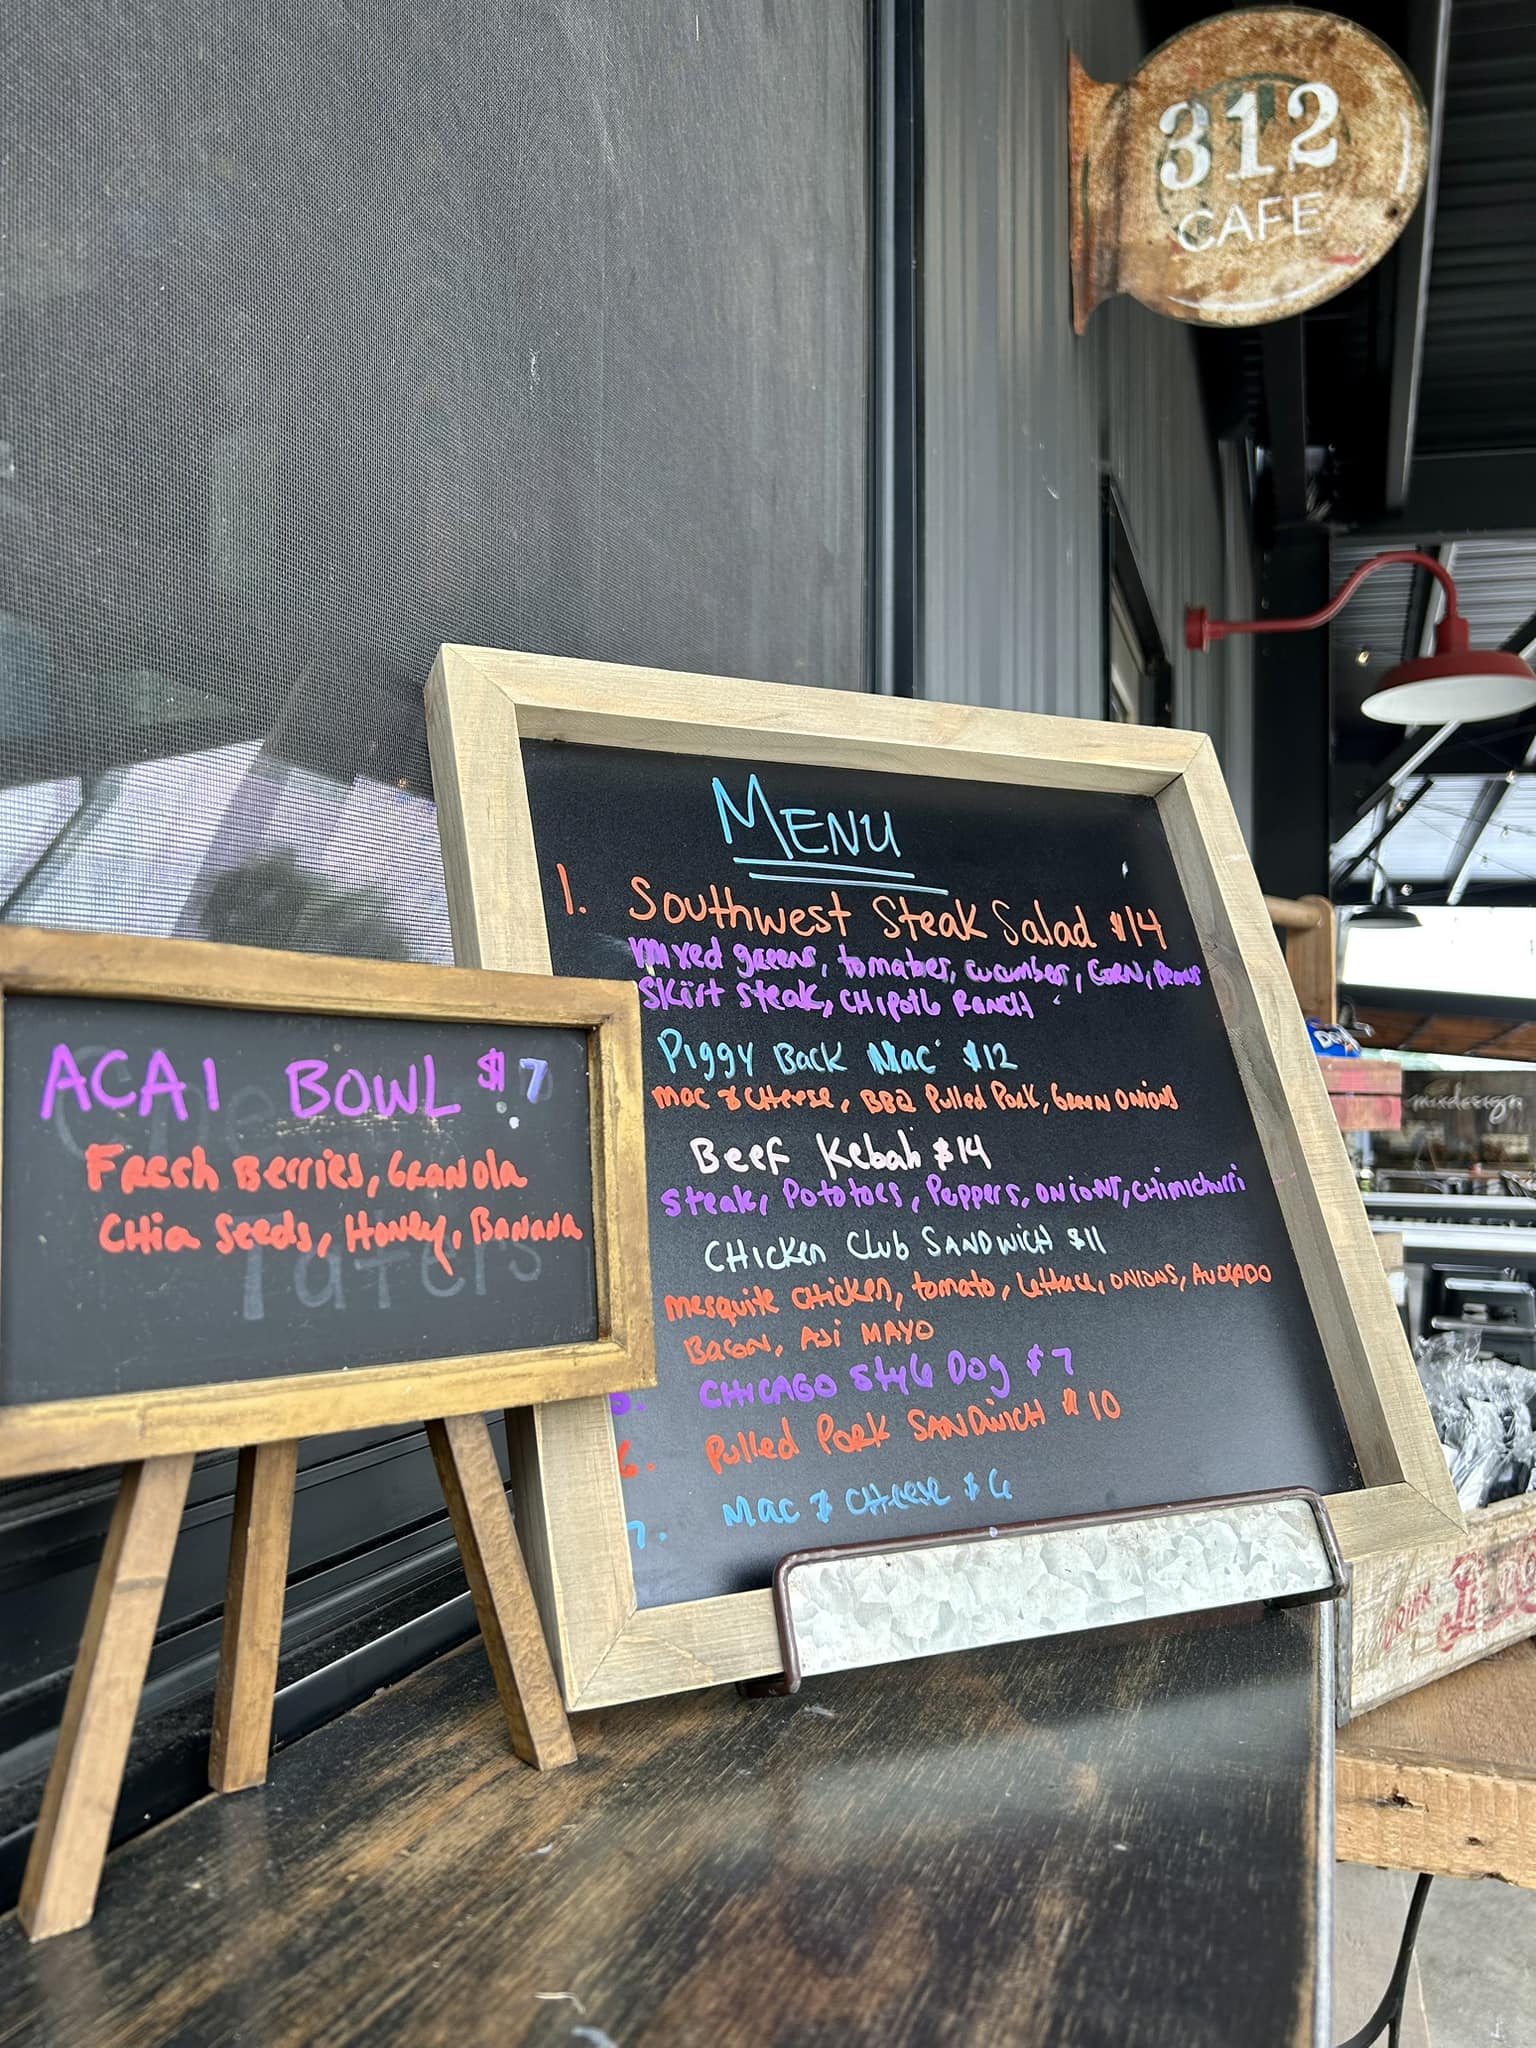 312
CAFE
MENU
1. Southwest Steak Salad $14
Mixed greens, tomatoes, cucumber, CORN, Beans
Skirt steak, CHIPOTLE RANCH
Piggy Back Mac $12
Mac & CHeese, BBQ Pulled Pork, Green onions
Beef Kebab $14
Steak, Pototoes, Peppers, onions, CHimichurri
CHicken Club SANDWICH $11
Mesquite CHicken, tomato, Lettuce, ONIONS, AVOCADO
BACON, Aji MAYO
5. CHICAGO Style Dog $7
6. Pulled Pork SANDWICH $10
7. Mac & CHeese $6
ACAI BOWL $7
Fresh Berries, Granola
CHia Seeds, Honey, Banana
Taters
DRINK